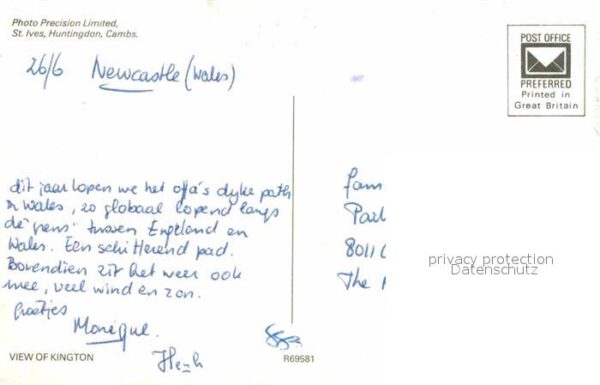 Photo Precision Limited,
St. Ives, Huntingdon, Cambs.
POST OFFICE
PREFERRED
Printed in
Great Britain
26/6 Newcastle (Wales)
dit jaar lopen we het offa's dyke path
in Wales, zo globaal lopend langs
de "grens" tussen Engeland en
Wales. Een schitterend pad.
Bovendien zit het weer ook
mee, veel wind en zon.
Groetjes
Monique.
Henk
Fam
Park
8011
The
privacy protection
Datenschutz
VIEW OF KINGTON
R69581